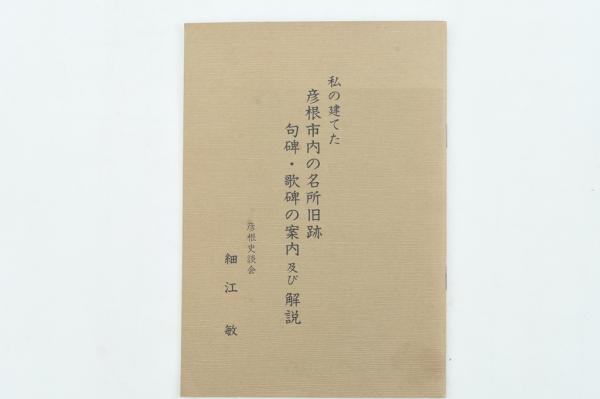 私の建てた
彦根市内の名所旧跡
句碑・歌碑の案内及び解説
彦根史談会
細江敏